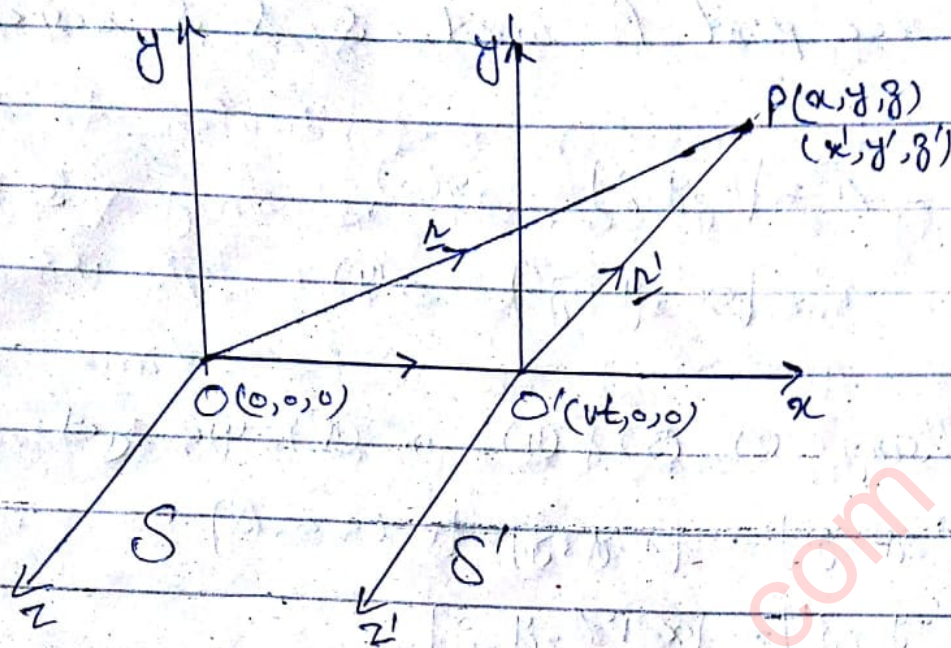 y
y'
P(x,y,z)
(x',y',z')
r
r'
O(0,0,0)
O'(vt,0,0)
x
S
S'
z
z'
com